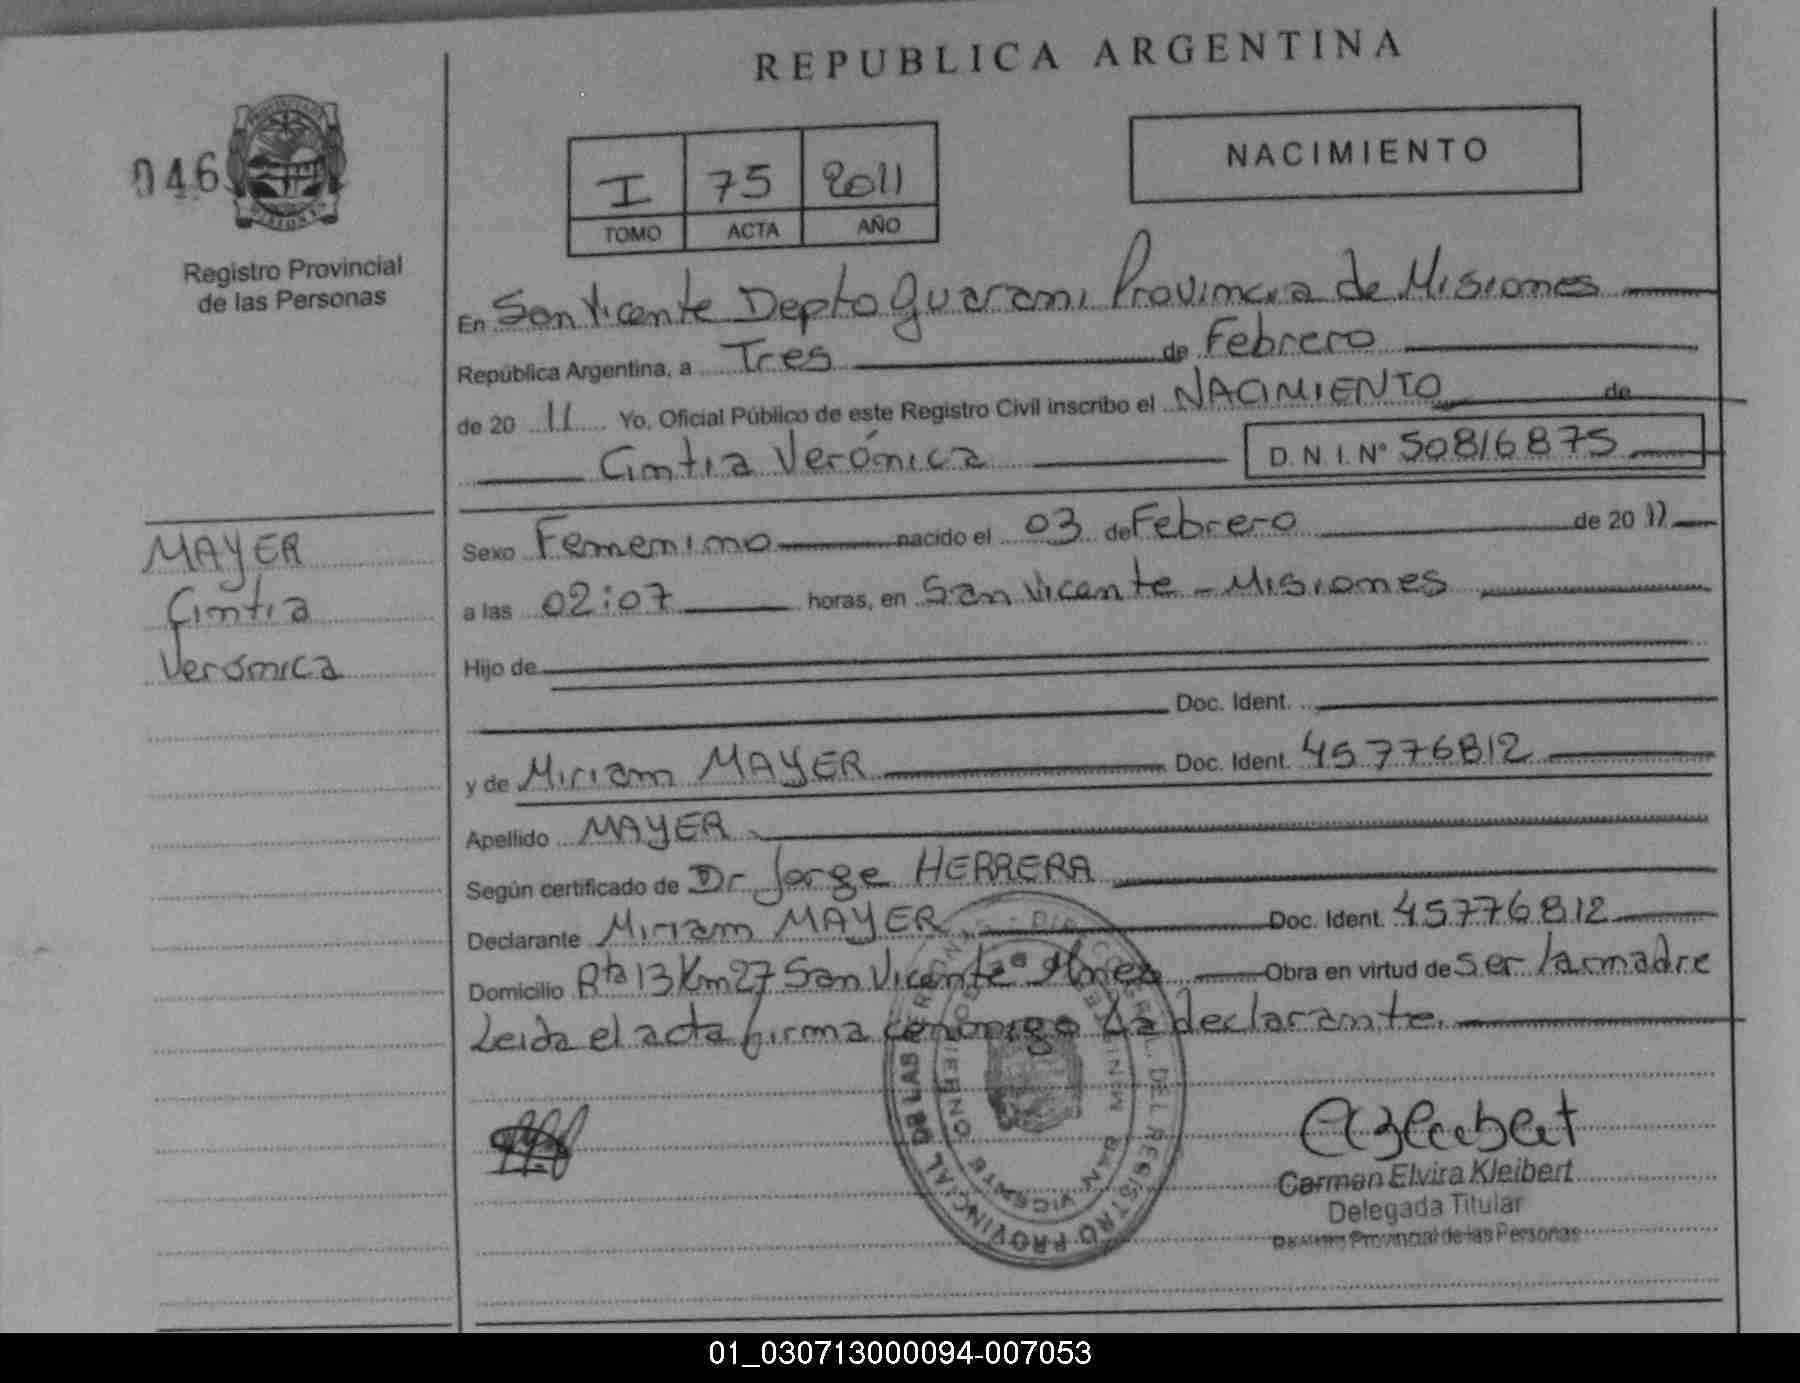 REPUBLICA ARGENTINA
046
NACIMIENTO
I 75 2011
TOMO ACTA AÑO
Registro Provincial
de las Personas
En San Vicente Depto Guarani Provincia de Misiones
República Argentina, a Tres de Febrero
de 20 11 Yo, Oficial Público de este Registro Civil inscribo el NACIMIENTO de
Cintia Verónica D.N.I. Nº 50816875
MAYER
Cintia
Verónica
Sexo Femenino nacido el 03 de Febrero de 20 11
a las 02:07 horas, en San Vicente - Misiones
Hijo de
Doc. Ident.
y de Miriam MAYER Doc. Ident. 45776812
Apellido MAYER
Según certificado de Dr Jorge HERRERA
Declarante Miriam MAYER Doc. Ident. 45776812
Domicilio Rta 13 Km 27 San Vicente Mnes Obra en virtud de ser la madre
Leida el acta firma conmigo La declarante.
Carmen Elvira Kleibert
Delegada Titular
Registro Provincial de las Personas
REGISTRO PROVINCIAL DE LAS
SAN VICENTE
01_030713000094-007053